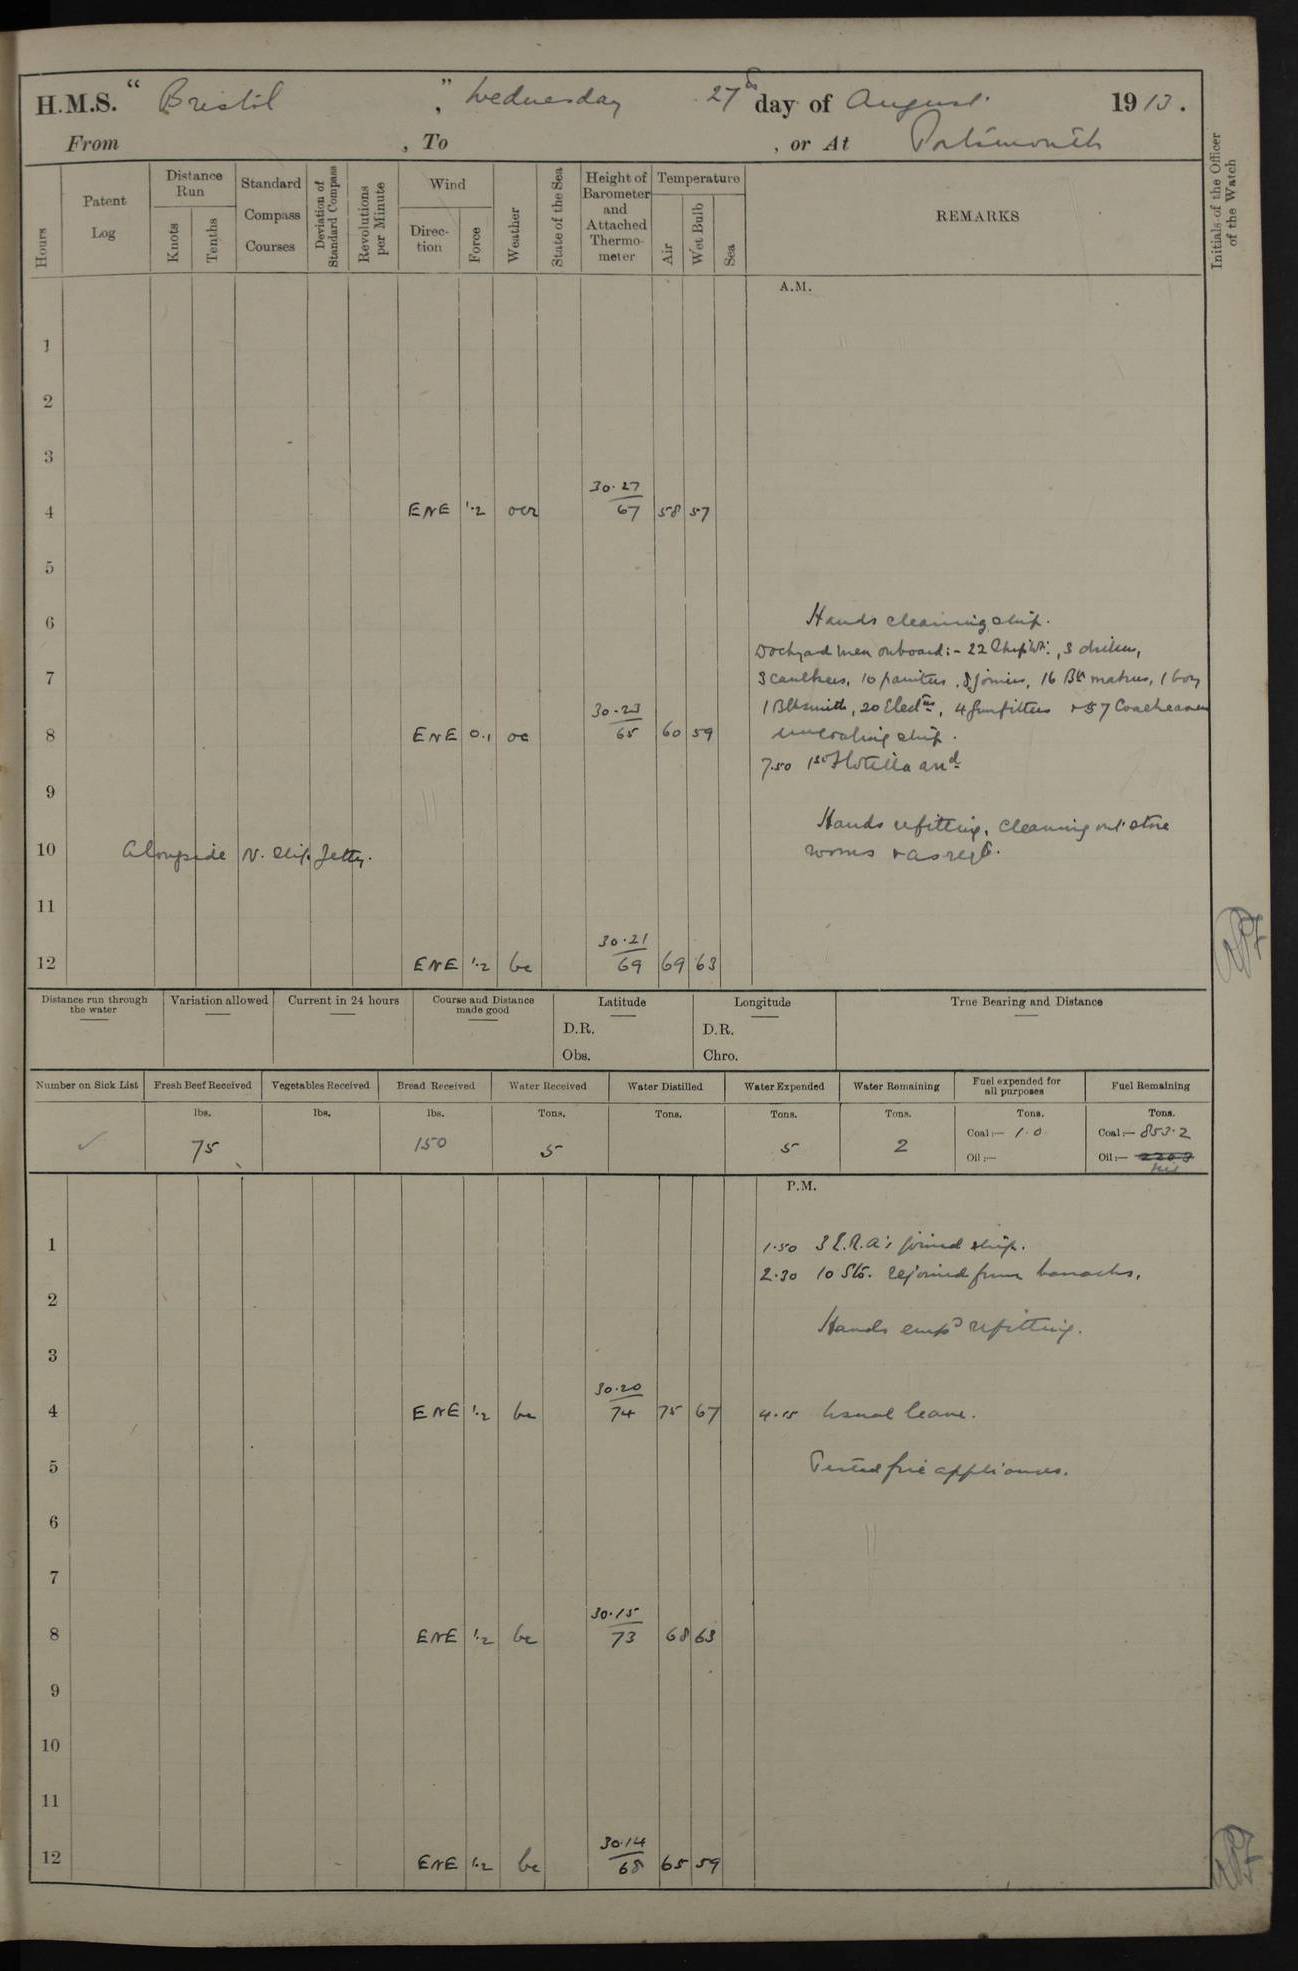 H.M.S. "Bristol", Wednesday 27th day of August 1913.
From , To , or At Portsmouth
Hours
Patent Log
Distance Run
Knots
Tenths
Standard Compass Courses
Deviation of Standard Compass
Revolutions per Minute
Wind
Direction
Force
Weather
State of the Sea
Height of Barometer and Attached Thermometer
Temperature
Air
Wet Bulb
Sea
REMARKS
Initials of the Officer of the Watch
A.M.
1
2
3
4 ENE 1.2 30.27 67 58 57
5
6 Hands cleaning ship.
Dockyard men onboard:- 22 Shipwts:, 3
7 3 caulkers, 10 painters, 8 joiners, 16 1 boy
1 Blksmith, 20 Electns, 4 gunfitters + 57 Coalheavers
8 ENE 0.1 oc 30.23 65 60 59 uncoaling ship.
7.50 1st Flotilla arrd
9
Hands refitting, cleaning out store
10 Alongside N. Slip Jetty. rooms + as reqd.
11
12 ENE 1.2 bc 30.21 69 69 63
Distance run through the water
Variation allowed
Current in 24 hours
Course and Distance made good
Latitude
D.R.
Obs.
Longitude
D.R.
Chro.
True Bearing and Distance
Number on Sick List
Fresh Beef Received lbs. 75
Vegetables Received lbs.
Bread Received lbs. 150
Water Received Tons. 5
Water Distilled Tons.
Water Expended Tons. 5
Water Remaining Tons. 2
Fuel expended for all purposes Tons.
Coal:— 1.0
Oil:—
Fuel Remaining Tons.
Coal:— 853.2
Oil:— 220.3 Nil
P.M.
1 1.50 3 E.R.A's joined ship.
2.30 10 Sto. rejoined from barracks.
2
Hands empd refitting.
3
4 ENE 1.2 bc 30.20 74 75 67 4.15 Usual leave.
5 Tested fire appliances.
6
7
8 ENE 1.2 bc 30.15 73 68 63
9
10
11
12 ENE 1.2 bc 30.14 68 65 59